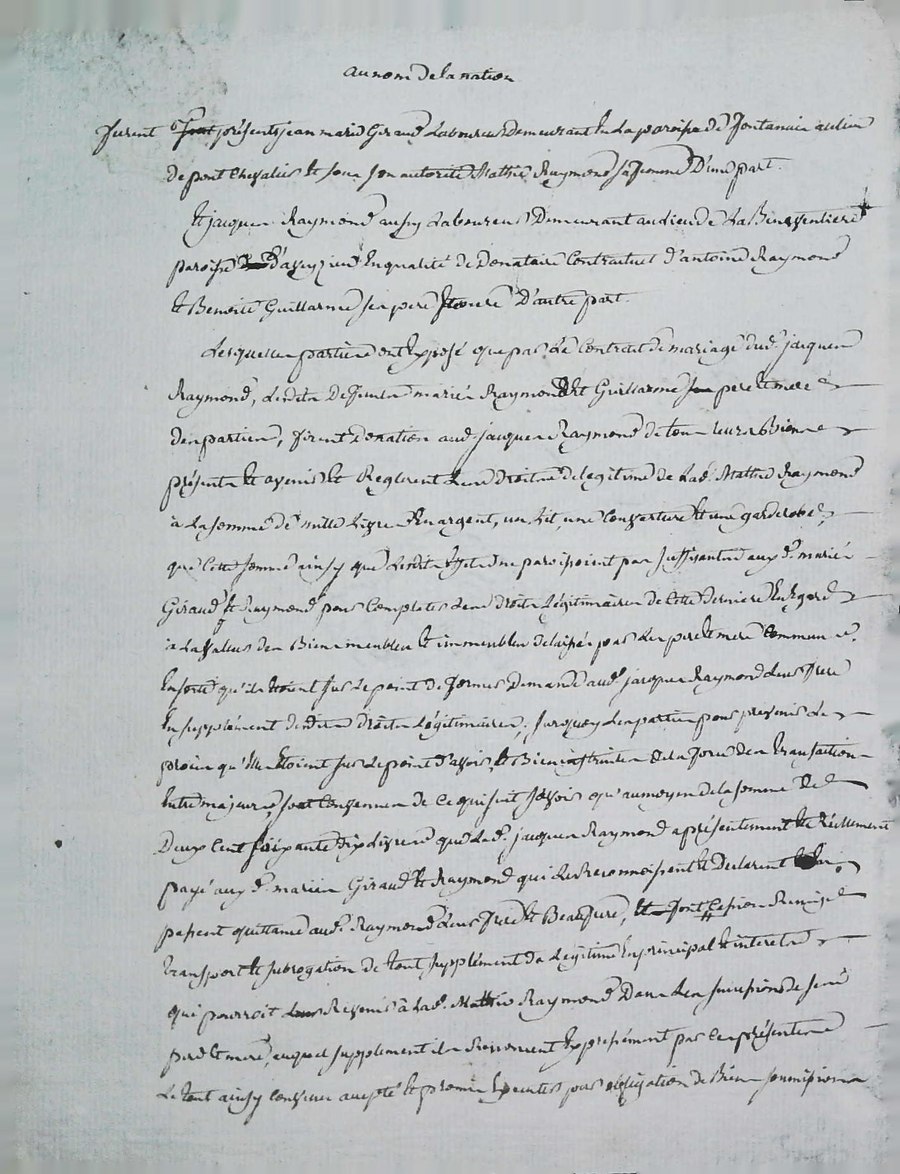 au nom de la nation
furent présents jean marie Giraud Laboureur demeurant en La paroisse de fontanais au lieu
de pont chevalier et sous son autorité Mathie Raymond sa femme D'une part.
et jacques Raymond aussy Laboureur Demeurant au lieu de La
paroisse d'aveyzieu En qualité de Donataire Contractuel d'antoine Raymond
et Benoite Guillarme ses pere et mere D'autre part.
Lesquelles parties ont Exposé que par Le Contrat de mariage dud. jacques
Raymond, Lesdits Defunts mariés Raymond et Guillarme pere et mere
des parties, firent Donation aud. jacques Raymond de tous leurs Biens
présents et avenir et Reglerent Les Droits de legitime de Lad. Mathie Raymond
à La somme de mille Livres En argent, un Lit, une Couverture et une garderobe,
que Cette somme ainsy que Lesdits Effets ne paroissoient pas suffisants aux d. mariés
Giraud et Raymond pour Completer Les Droits Légitimaires de Cette Derniere En Egard
à La Valeur des Biens meubles et immeubles delaissés par Les pere et mere Communs.
En sorte qu'ils Etoient sur Le point de former Demande aud. jacques Raymond Leur frere
En supplément desdits Droits Légitimaires, surquoy Les parties pour prevenir Le
procès qu'Elles Etoient sur Le point d'avoir, et Bien instruites de la force des transactions
Entre majeurs, sont Convenues de Ce qui suit sçavoir qu'au moyen de la somme de
Deux Cent soixante dix Livres que Led. jacques Raymond a présentement et Réellement
payé aux d. mariés Giraud et Raymond qui Le Reconnoissent et Declarent
passent quittance aud. Raymond Leur frere et Beaufrere, et font Cession Remise
transport et subrogation de tout supplément de Légitime En principal et interets
qui pourroit Revenir à Lad. Mathie Raymond Dans Les successions de ses
pere et mere, auquel supplement ils Renoncent Expressément par Ces présentes
Le tout ainsy Convenu accepté et promis Executer par obligation de Biens soumissions